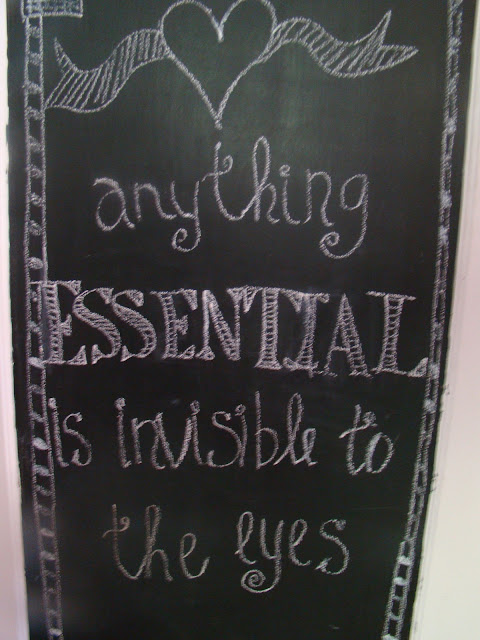 anything
ESSENTIAL
is invisible to
the eyes